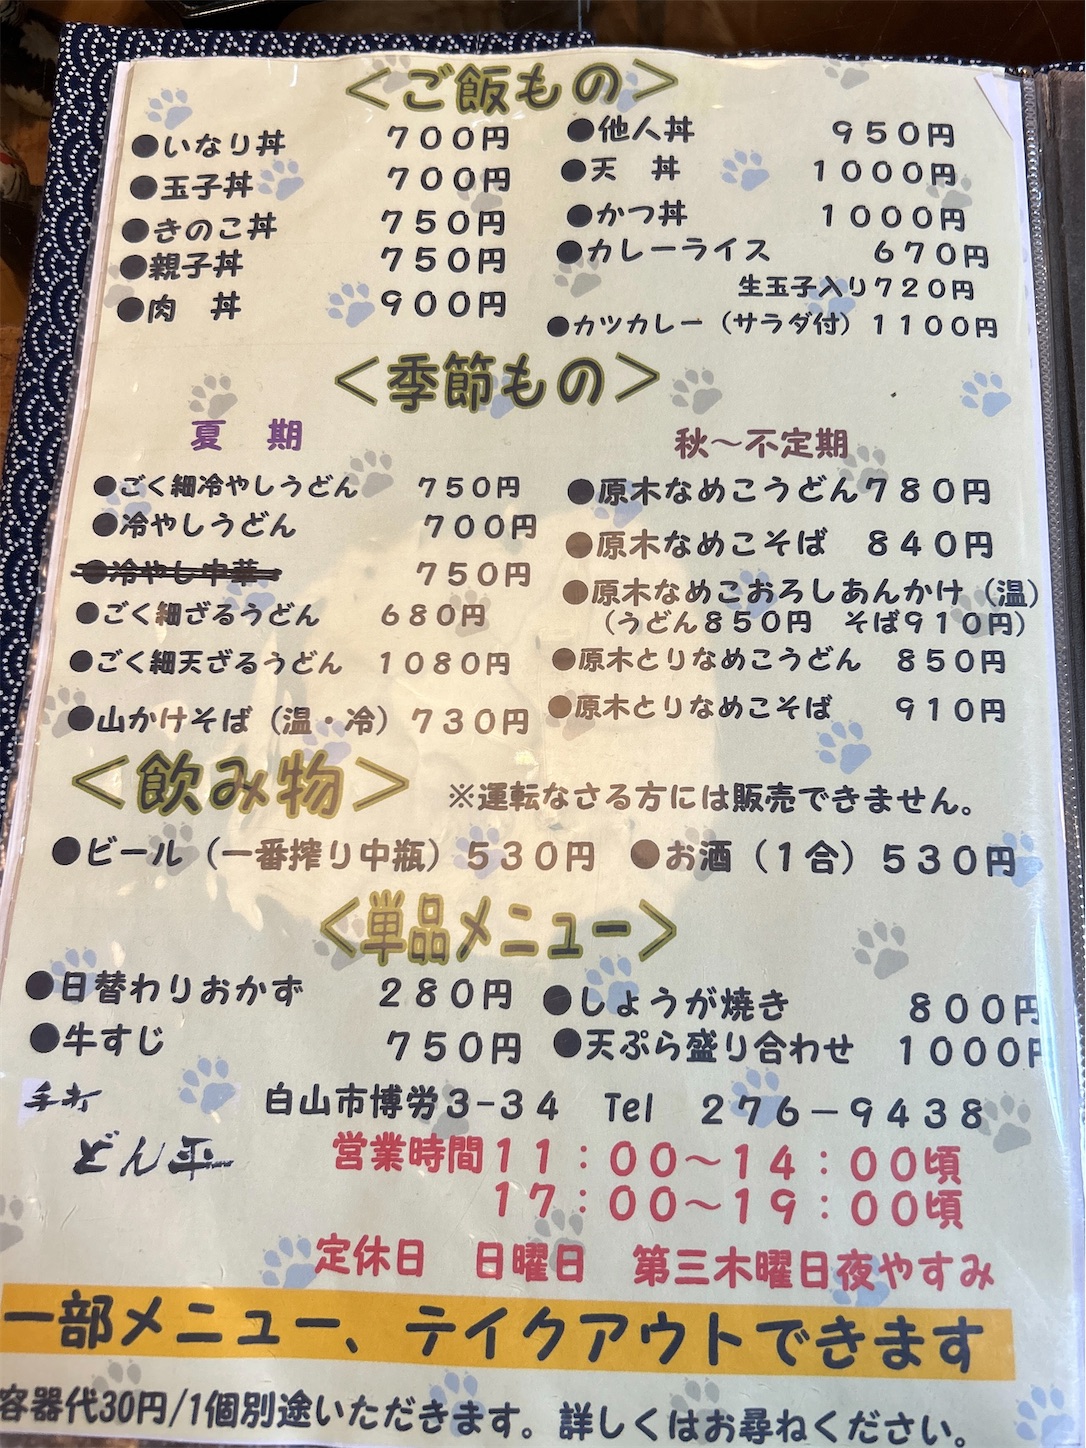 ＜ご飯もの＞
●いなり丼 ７００円
●玉子丼 ７００円
●きのこ丼 ７５０円
●親子丼 ７５０円
●肉　丼 ９００円
●他人丼 ９５０円
●天　丼 １０００円
●かつ丼 １０００円
●カレーライス ６７０円
生玉子入り７２０円
●カツカレー（サラダ付）１１００円
＜季節もの＞
夏　期
●ごく細冷やしうどん ７５０円
●冷やしうどん ７００円
●冷やし中華 ７５０円
●ごく細ざるうどん ６８０円
●ごく細天ざるうどん １０８０円
●山かけそば（温・冷）７３０円
秋～不定期
●原木なめこうどん７８０円
●原木なめこそば ８４０円
●原木なめこおろしあんかけ（温）
（うどん８５０円　そば９１０円）
●原木とりなめこうどん ８５０円
●原木とりなめこそば ９１０円
＜飲み物＞ ※運転なさる方には販売できません。
●ビール（一番搾り中瓶）５３０円 ●お酒（１合）５３０円
＜単品メニュー＞
●日替わりおかず ２８０円
●牛すじ ７５０円
●しょうが焼き ８００円
●天ぷら盛り合わせ １０００円
手打
どん平
白山市博労３－３４　Tel　２７６－９４３８
営業時間１１：００～１４：００頃
１７：００～１９：００頃
定休日　日曜日　第三木曜日夜やすみ
一部メニュー、テイクアウトできます
容器代30円/1個別途いただきます。詳しくはお尋ねください。